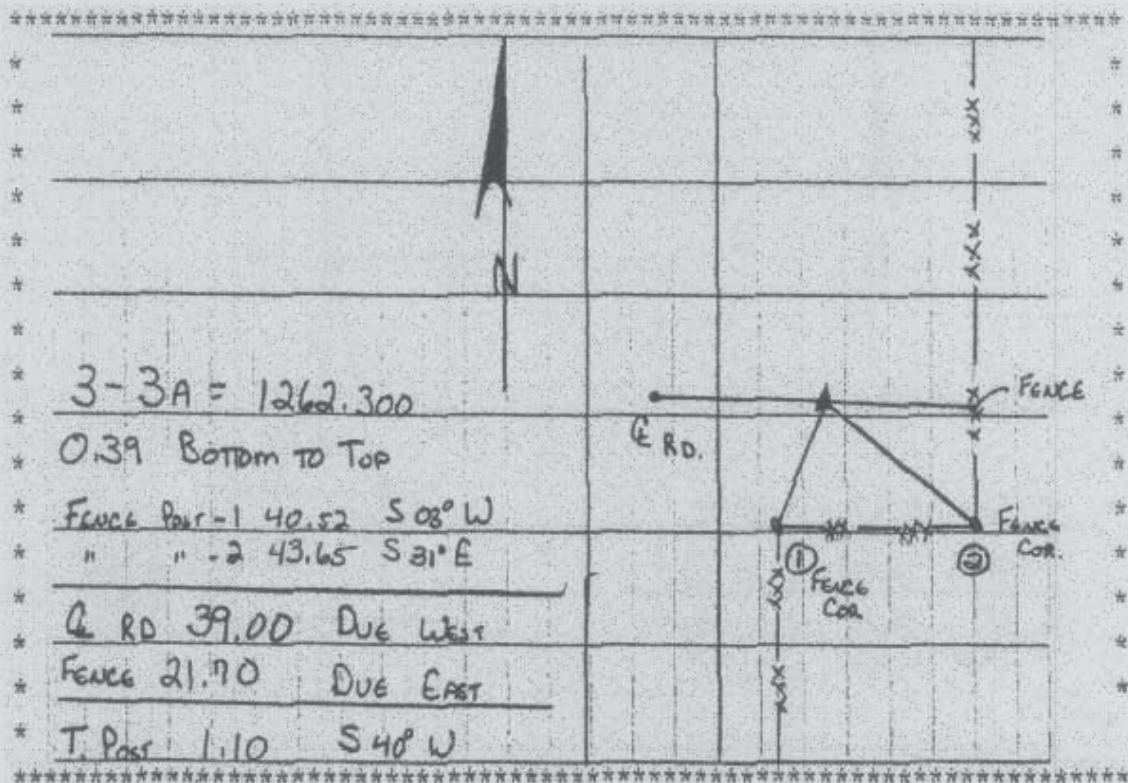 N
3-3A = 1262.300
0.39 BOTTOM TO TOP
FENCE POST-1 40.52 S 08° W
" " -2 43.65 S 31° E
℄ RD 39.00 DUE WEST
FENCE 21.70 DUE EAST
T. POST 1.10 S 40° W
FENCE
℄ RD.
FENCE
COR.
① ②
FENCE
COR